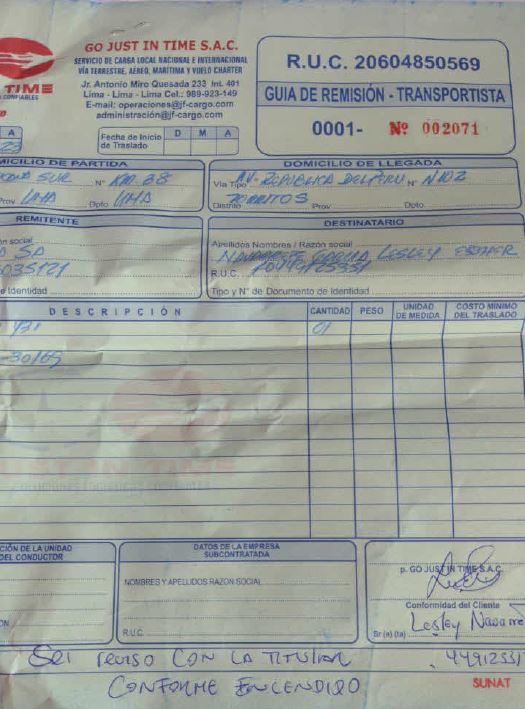 GO JUST IN TIME S.A.C.
SERVICIO DE CARGA LOCAL NACIONAL E INTERNACIONAL
VÍA TERRESTRE, AÉREO, MARÍTIMA Y VUELO CHARTER
Jr. Antonio Miro Quesada 233 Int. 401
Lima - Lima - Lima Cel.: 989-923-149
E-mail: operaciones@jf-cargo.com
administración@jf-cargo.com
TIME
CONFIABLES
R.U.C. 20604850569
GUIA DE REMISIÓN - TRANSPORTISTA
0001- Nº 002071
A
23
Fecha de Inicio de Traslado D M A
MICILIO DE PARTIDA
SUR N° KM. 38
Prov. LIMA Dpto. LIMA
DOMICILIO DE LLEGADA
Vía Tipo AV. REPUBLICA DEL PERU N° N102
Distrito ZORRITOS Prov. Dpto.
REMITENTE
ón social
SA
035121
e Identidad
DESTINATARIO
Apellidos Nombres / Razón social
NAVARRETE GARCIA LESLEY ESTHER
R.U.C.
Tipo y N° de Documento de Identidad
DESCRIPCIÓN CANTIDAD PESO UNIDAD DE MEDIDA COSTO MÍNIMO DEL TRASLADO
01
-30165
JUST IN TIME
CIÓN DE LA UNIDAD
DEL CONDUCTOR
DATOS DE LA EMPRESA
SUBCONTRATADA
NOMBRES Y APELLIDOS RAZON SOCIAL
R.U.C.
p. GO JUST IN TIME S.A.C.
Conformidad del Cliente
Lesley Navarre
Sr (e) (ta)
SEI REVISO CON LA TITULAR 44912551
CONFORME ENCENDIDO
SUNAT